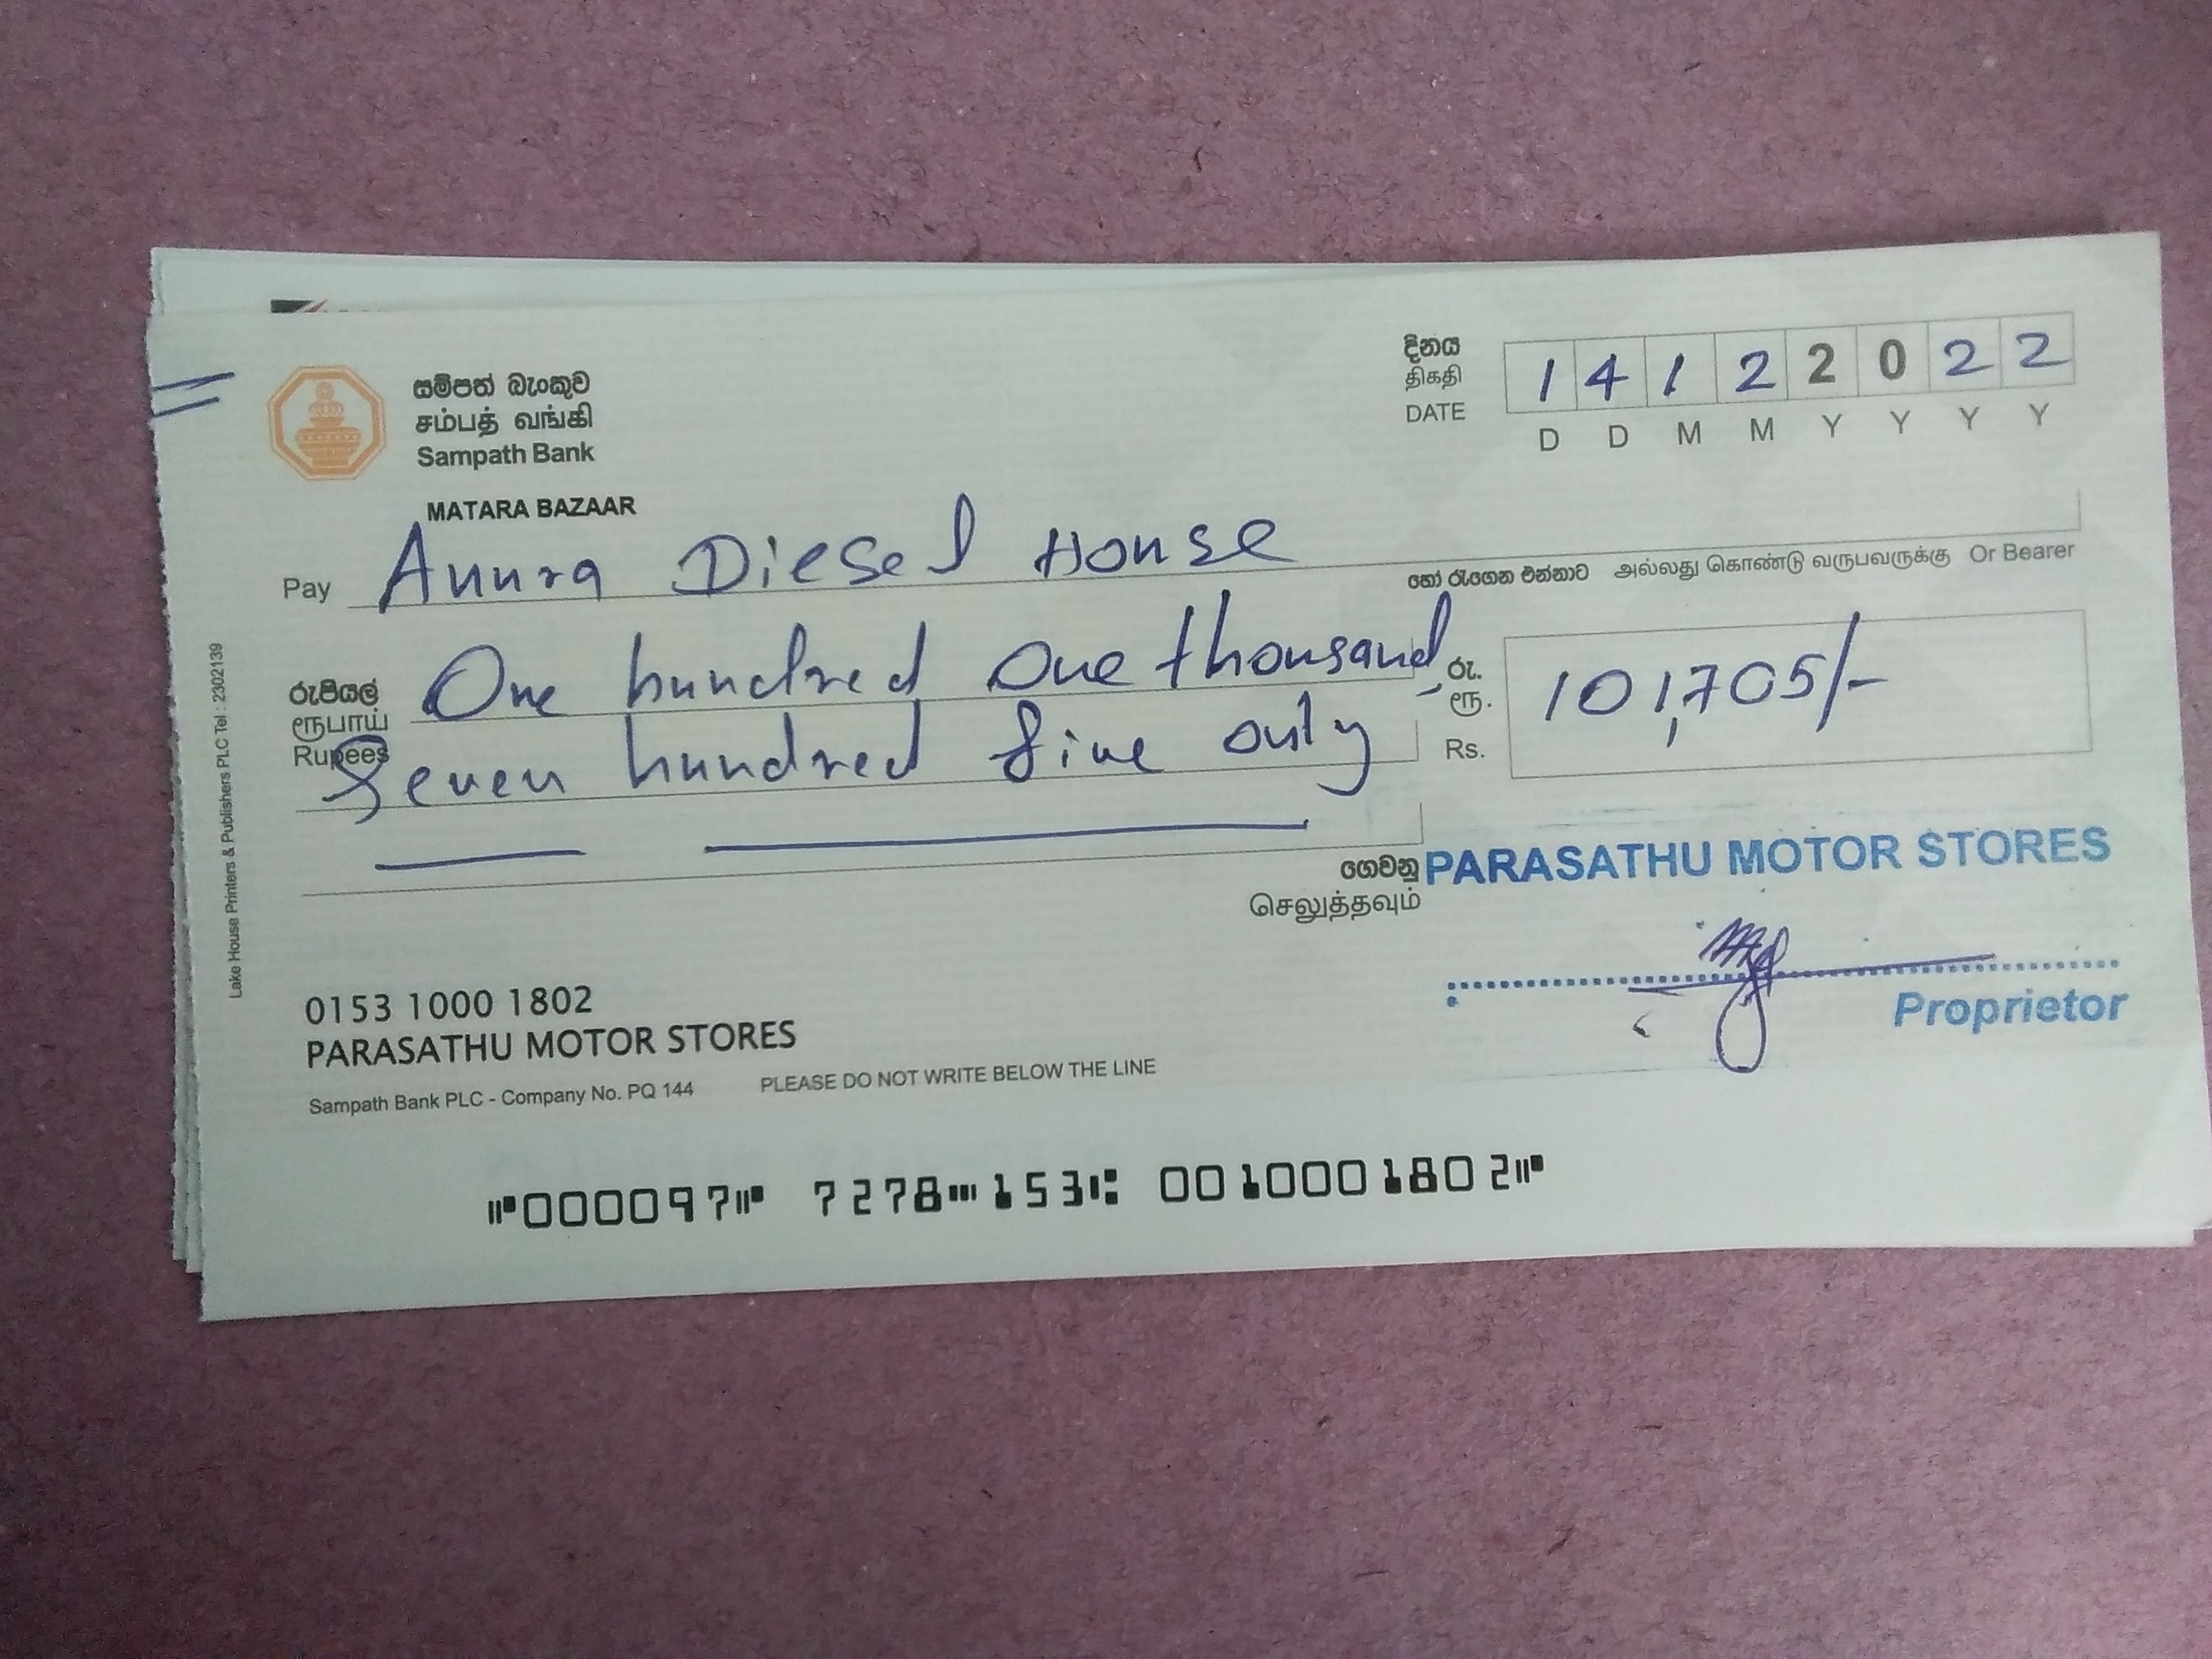 සම්පත් බැංකුව
சம்பத் வங்கி
Sampath Bank
MATARA BAZAAR
දිනය
திகதி
DATE
1 4 1 2 2 0 2 2
D D M M Y Y Y Y
Pay Anura Diesel House
හෝ රැගෙන එන්නාට அல்லது கொண்டு வருபவருக்கு Or Bearer
රුපියල්
ரூபாய்
Rupees
One hundred one thousand
Seven hundred five only
රු.
ரூ.
Rs.
101,705/-
ගෙවනු
செலுத்தவும்
PARASATHU MOTOR STORES
Proprietor
Lake House Printers & Publishers PLC Tel : 2302139
0153 1000 1802
PARASATHU MOTOR STORES
Sampath Bank PLC - Company No. PQ 144 PLEASE DO NOT WRITE BELOW THE LINE
⑈000097⑈ 7278⑉153⑆ 0010001802⑈